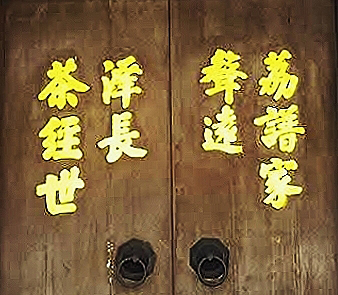 荔譜家
聲遠
茶經世
澤長